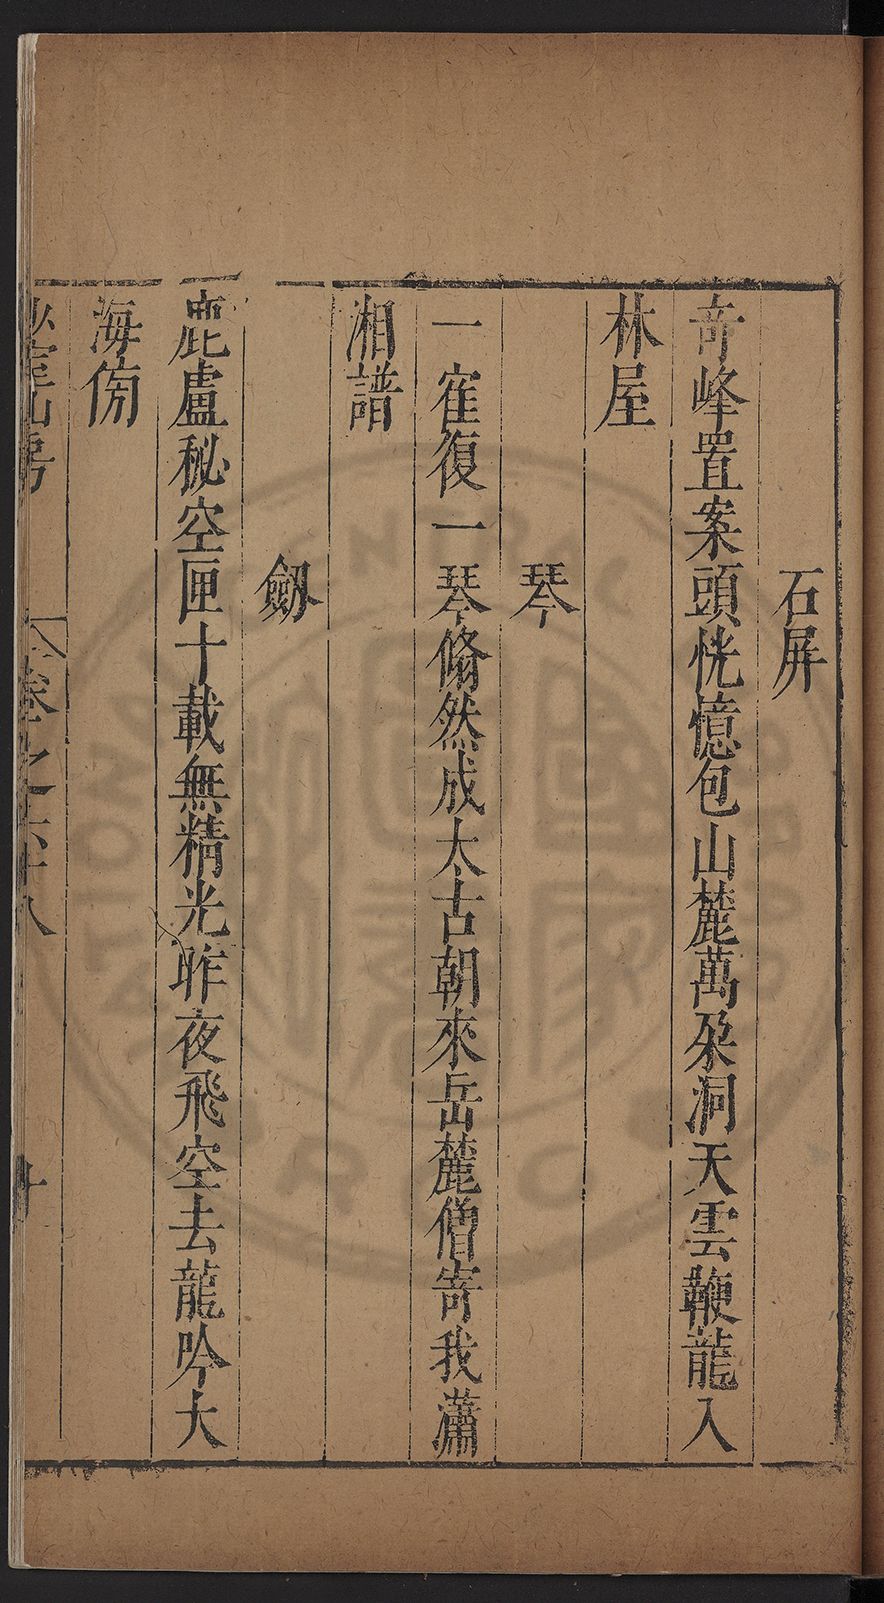 石屏
奇峰置案頭恍憶包山麓萬朶洞天雲鞭龍入
林屋
琴
一寉復一琴翛然成太古朝來岳麓僧寄我瀟
湘譜
劒
鹿盧秘空匣十載無精光昨夜飛空去龍吟大
海傍
山房
卷之六十八